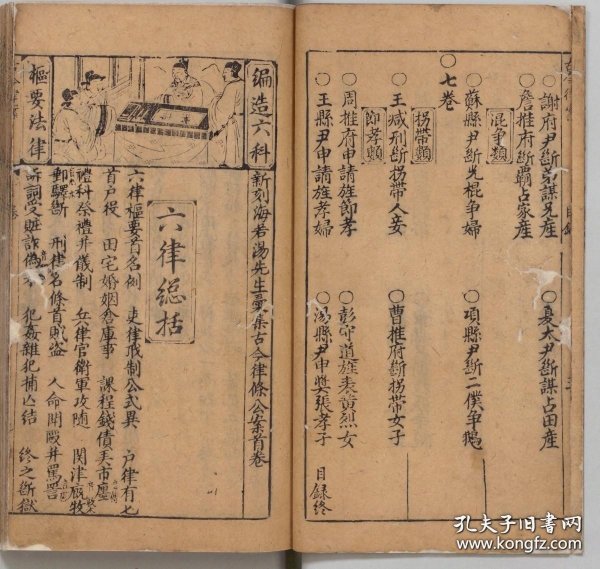 ○謝府尹斷弟謀兄產
○詹推府斷霸占家產
混爭類
○蘇縣尹斷光棍爭婦
○七卷
拐帶類
○王減刑斷拐帶人妾
節孝類
○周推府申請旌節孝
○王縣尹申請旌孝婦
○夏太尹斷謀占田產
○項縣尹斷二僕爭鵝
○曹推府斷拐帶女子
○彭守道旌表黃烈女
○湯縣尹申獎張孝子
目錄終
編造六科
樞要法律
新刻海若湯先生彙集古今律條公案首卷
六律総括
六律樞要首名例 吏律職制公式異 户律有七
首户役 田宅婚姻倉庫事 課程錢債共市廛
禮科祭禮并儀制 兵律官衛軍攻隨 関津廐牧
郵驛斷 刑律名條首賊盜 人命鬪毆并罵詈
訴訟受賍詐偽 犯姦雜犯捕亾結 終之斷獄
孔夫子旧書网
www.kongfz.com